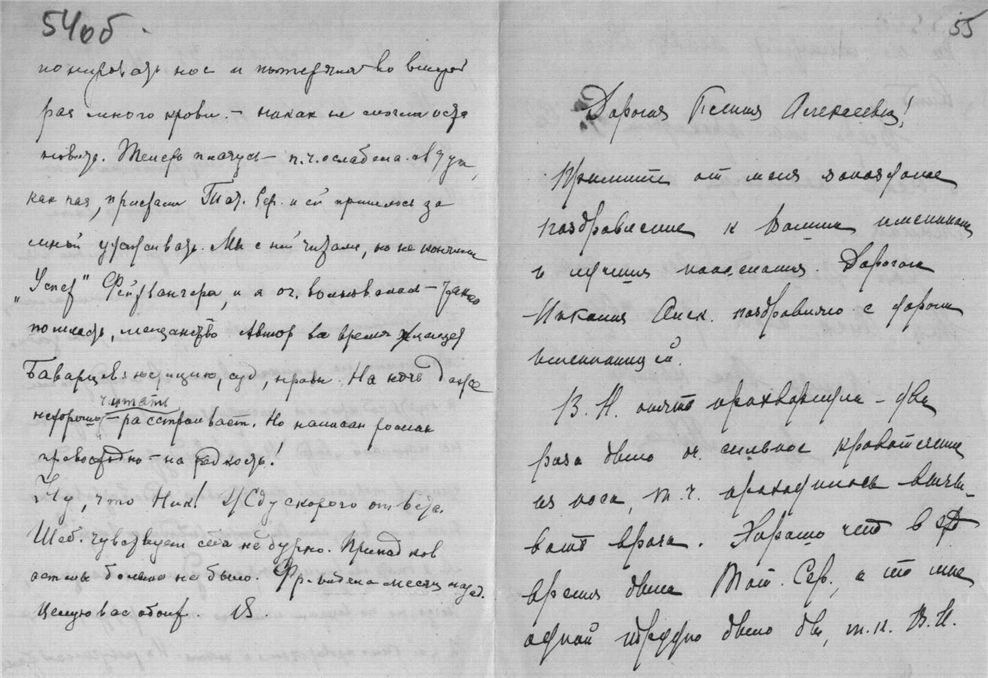 54об.
нировать нос и потеряла во второй
раз много крови. – никак не могли оста
новить. Теперь плачусь – п.ч. ослабела. в 7 ут,
как раз, приехали Тат. Сер. и ей пришлось за
мной ухаживать. Мы с ней читали, но не кончили
„Успех" Фейхтвангера и я оч. волновалась –
подлость, мещанство Автор во время
Баварцев юстицию, суд, нравы. На ночь даже
читать
нехорошо – расстраивает. Но написан роман
превосходно – на редкость!
Ну, что Ник! Жду скорого ответа.
Шаб. чувствует себя не дурно. Припадков
астмы больше не было. Фр. видела месяц назад.
Целую вас обоих.
55
Дорогая Ксения Алексеевна!
Примите от меня запоздалое
поздравление к Вашим именинам
и лучшия пожелания. Дорогого
Николая Алек. поздравляю с дорогой
именинницей.
В. Н. опять прихварнула – два
раза было оч. сильное кровотечение
из носа, т.ч. приходилось вызы-
вать врача. Хорошо что в это
время была Тат. Сер., а то мне
одной трудно было бы, т.к. В.Н.